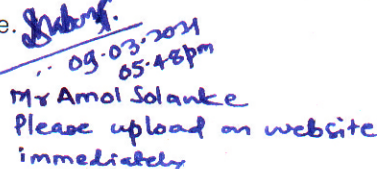 e.
09-03-2021
05.48pm
Mr Amol Solanke
Please upload on website
immediately